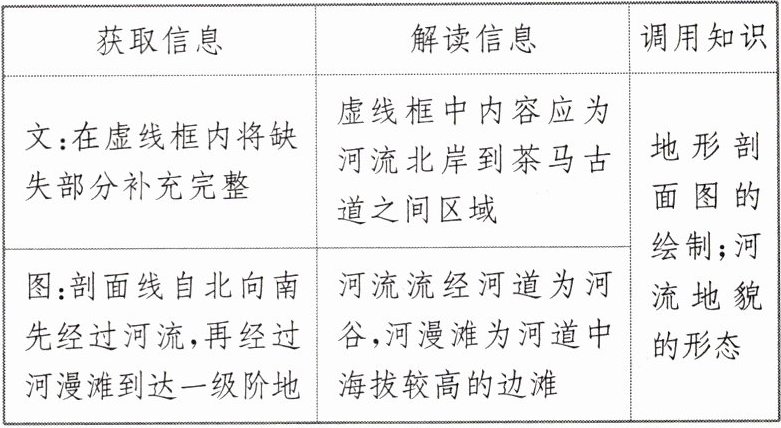 获取信息
解读信息
调用知识
文:在虚线框内将缺
失部分补充完整
虚线框中内容应为
河流北岸到茶马古
道之间区域
地形剖
面图的
绘制;河
流地貌
的形态
图:剖面线自北向南
先经过河流,再经过
河漫滩到达一级阶地
河流流经河道为河
谷,河漫滩为河道中
海拔较高的边滩